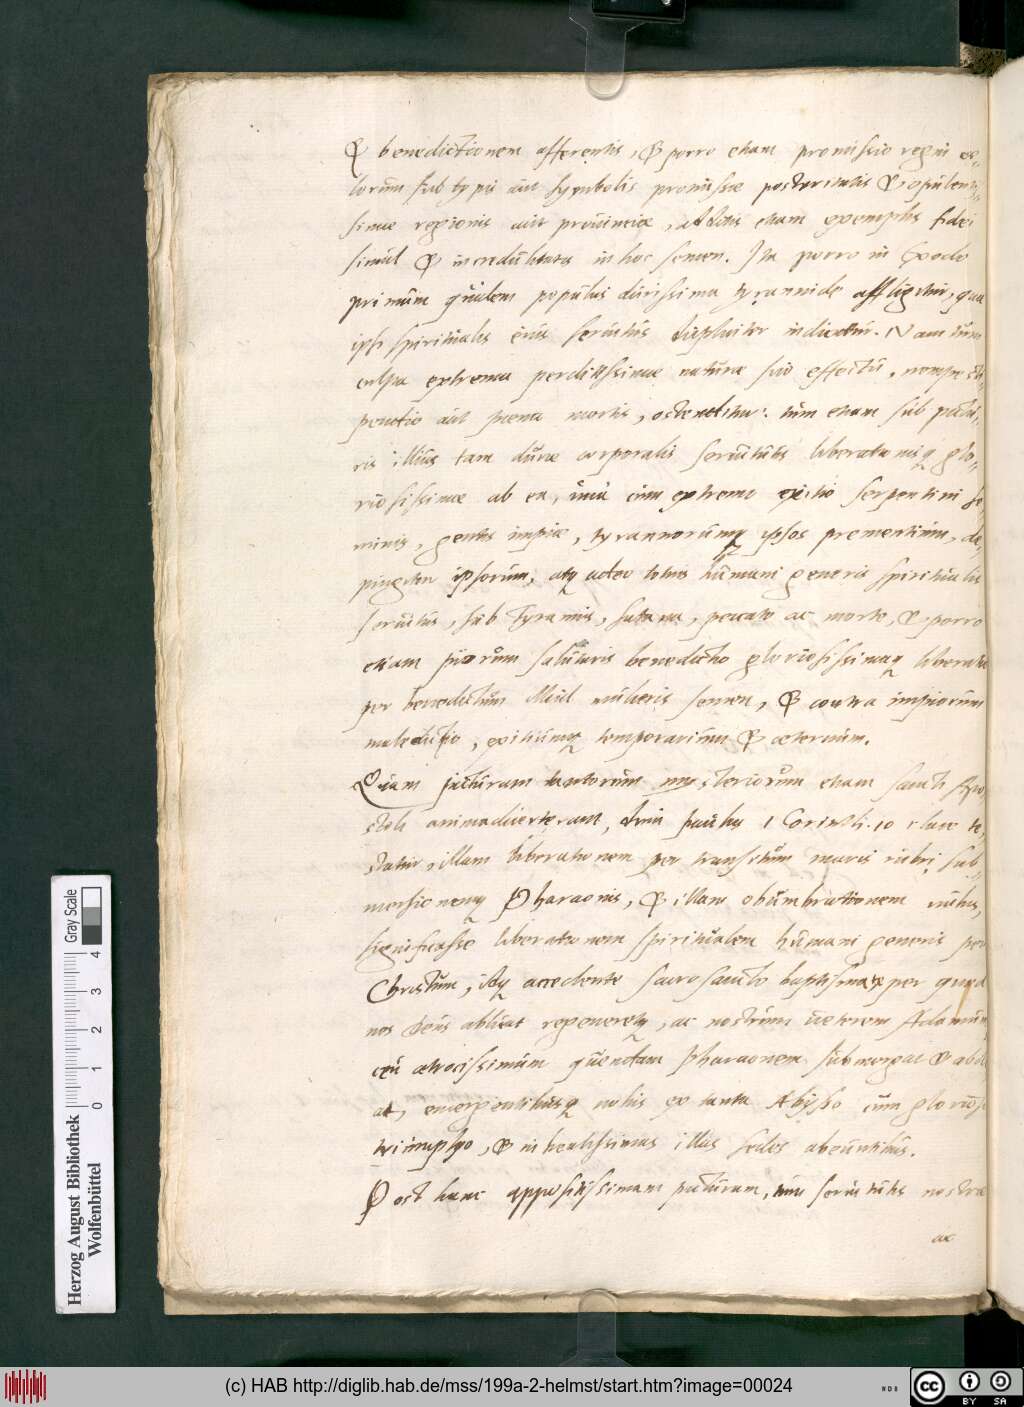 & benedictionem afferentis, & porro etiam promissio regni cę-
lorum sub typis aut symbolis promissae posteritatis & opulentis-
simae regionis aut prouinciae, additis etiam exemplis fidei
simul & incredulitatis in hoc semen. Ita porro in Exodo
primùm quidem populus durissima tyrannide affligitur, qua
ipsa spiritualis eius seruitus dupliciter indicatur. Nam tum
culpa extrema perditissimae naturae suo effectu,
aut poena mortis, ostenditur: tum etiam sub pictu-
ris illius tam durae corporalis seruitutis liberationisq glo-
riosissimae ab ea, unà cum extremo exitio serpentini se-
minis, gentis impiae, tyrannorumq ipsos prementium, de-
pingitur ipsorum, atq adeo totius humani generis spiritualis
seruitus, sub Tyrannis, satana, peccato ac morte, & porro
etiam piorum salutaris benedictio gloriosissimaq liberatio
per benedictum illud mulieris semen, & contra impiorum
maledictio, exitiumq temporarium & aeternum.
Quam picturam tantorum mysteriorum etiam sancti Apo-
stoli animaduerterunt, dum Paulus 1 Corinth. 10 clare te-
statur, illam liberationem per transitum maris rubri, sub-
mersionemq Pharaonis, & illam obumbrationem nubis,
significasse liberationem spiritualem humani generis per
Christum, idq accedente sacrosancto baptismate, per quod
nos Deus abluat regeneretq, ac nostrum ueterem Adamum,
ceu atrocissimum quendam Pharaonem submergat &
at, emergentibusq nobis ex tanta Abysso cum glorioso
triumpho, & in beatissimas illas sedes abeuntibus.
Post hanc appositissimam picturam, tum seruitutis nostrae
ac
Herzog August Bibliothek
Wolfenbüttel
0 1 2 3 4
Gray Scale
(c) HAB http://diglib.hab.de/mss/199a-2-helmst/start.htm?image=00024
cc BY SA